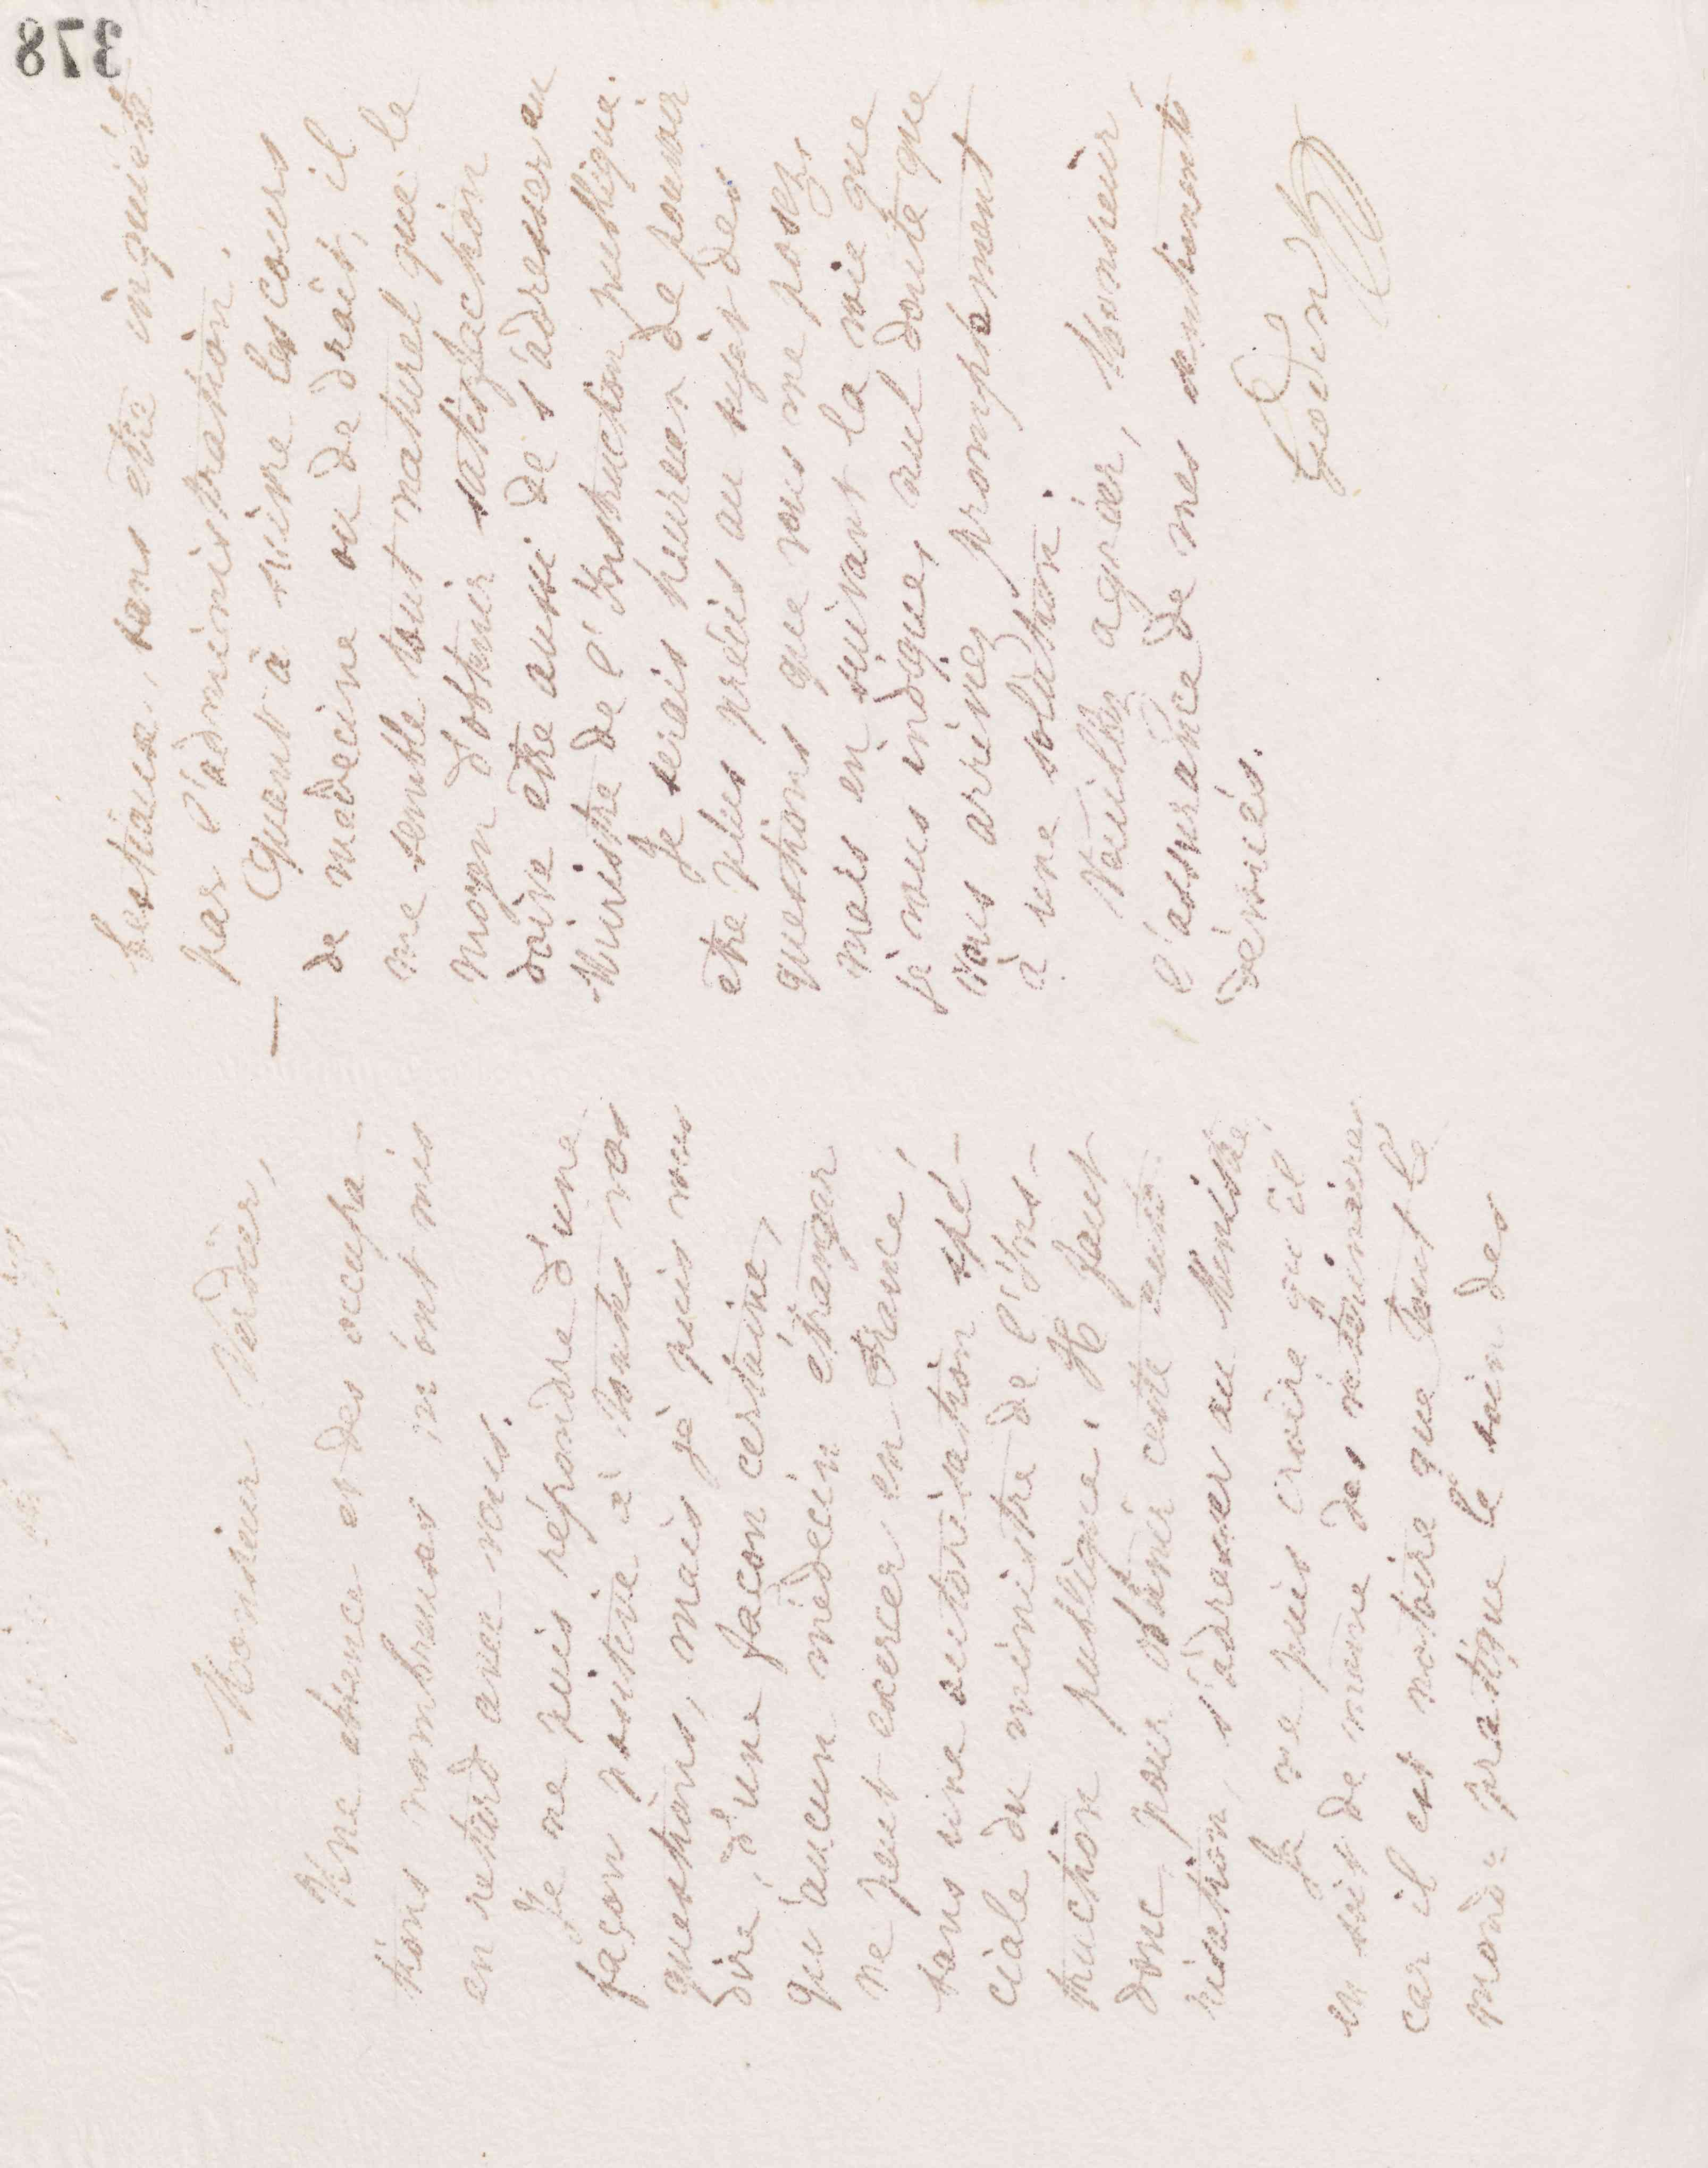 378
Monsieur Verdier,
Une absence et des occupa-
tions nombreuses m'ont mis
en retard avec vous.
Je ne puis répondre d'une
façon positive à toutes vos
questions, mais je puis vous
dire, d'une façon certaine,
qu'aucun médecin étranger
ne peut exercer en France
sans une autorisation spé-
ciale du ministre de l'Ins-
truction publique. Il faut
donc pour obtenir cette auto-
risation, s'adresser au Ministre,
Je ne puis croire qu'il
en soit de même des vétérinaires
car il est notoire que tout le
monde pratique le soin des
bestiaux, sans être inquiété
par l'administration.
— Quant à suivre les cours
de médecine ou de droit, il
me semble tout naturel que le
moyen d'obtenir satisfaction
doive être aussi de s'adresser au
Ministre de l'Instruction publique.
Je serais heureux de pouvoir
être plus précis au sujet des
questions que vous me posez,
mais en suivant la voie que
je vous indique, nul doute que
vous arriviez promptement
à une solution.
Veuillez agréer, Monsieur
l'assurance de mes sentiments
dévoués.
Godin